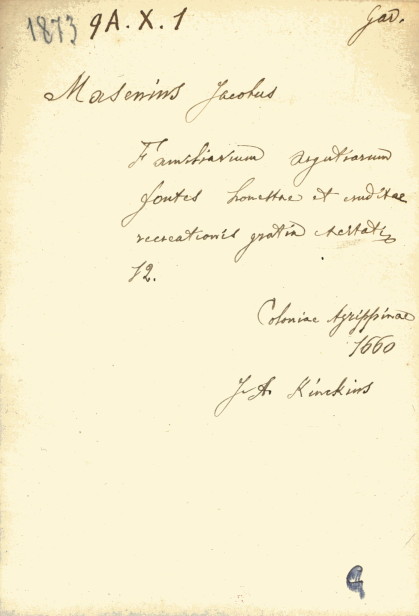 1873 9A.X.1 Gad.
Masenius Jacobus
Familiarium argutiarum
fontes honestae et eruditae
recreationis gratia
12.
Coloniae Agrippinae
1660
J. A. Kinckius